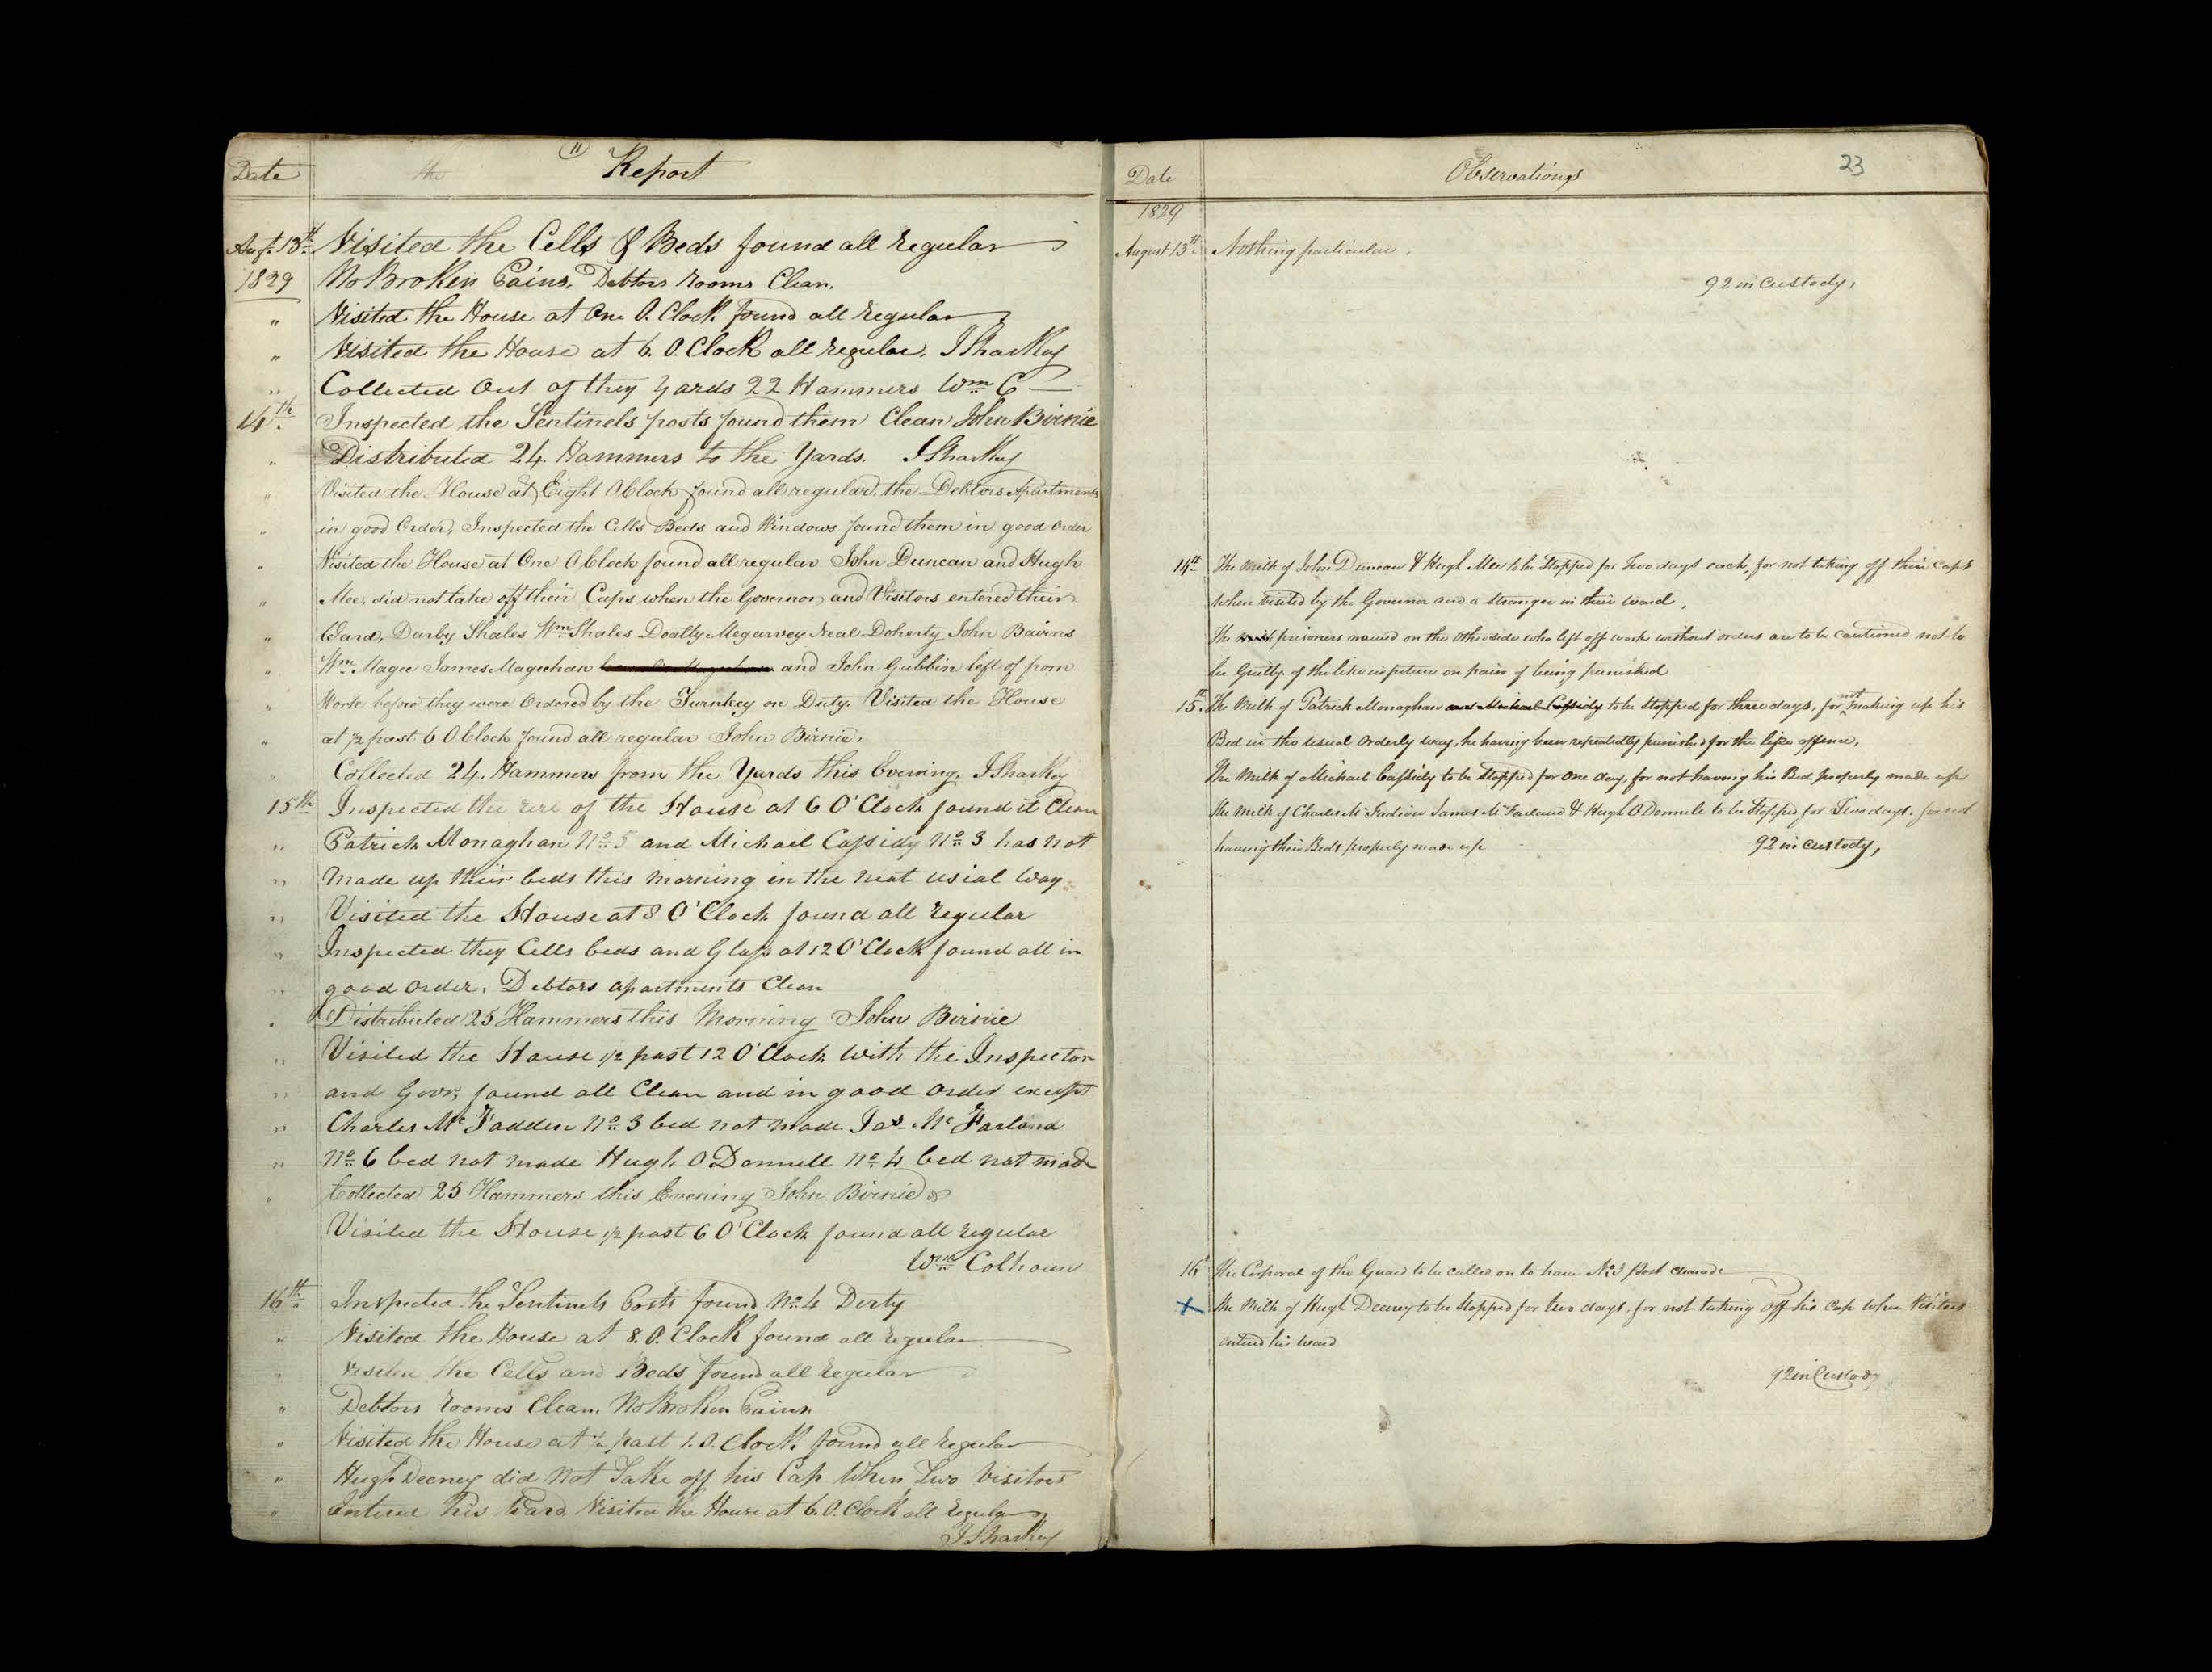 11
Date
Report
Augt. 13th Visited the Cells & Beds found all regular
1829 No Broken Pains, Debtors rooms Clean.
" Visited the House at One O.Clock found all regular
" Visited the House at 6. O.Clock all regular. J Sharkey
" Collected Out of they yards 22 Hammers Wm C
14th Inspected the Sentinels posts found them Clean John Birnie
" Distributed 24. Hammers to the Yards. J Sharkey
" Visited the House at Eight OClock found all regular, the Debtors Apartments
" in good Order, Inspected the Cells Beds and Windows found them in good Order
" Visited the House at One OClock found all regular John Duncan and Hugh
" Mee. did not take off their Caps when the Governor and Visitors entered their
" Ward, Darby Shales Wm Shales Doatly Megarvey Neal Doherty John Bavins
" Wm. Magee James Mageehan and John Gubbin left of from
" Work before they were Ordered by the Turnkey on Duty. Visited the House
" at 1/2 past 6 OClock found all regular John Birnie.
Collected 24. Hammers from the Yards this Evening. J Sharkey
15th Inspected the rere of the House at 6 O'Clock found it Clean
" Patrick Monaghan No. 5 and Michael Cassidy No. 3 has not
" made up their beds this morning in the neat usial Way.
" Visited the House at 8 O'Clock found all regular
" Inspected they Cells beds and Glass at 12 O'Clock found all in
" good order. Debtors apartments Clean
Distributed 25 Hammers this Morning John Birnie
" Visited the House 1/2 past 12 O'Clock with the Inspector
" and Govr; found all Clean and in good order except
" Charles McFadden No. 3 bed not made Jas. McFarland
" No. 6 bed not made Hugh O Donnell No. 4 bed not made
" Collected 25 Hammers this Evening John Birnie
Visited the House 1/2 past 6 O'Clock found all regular
Wm Colhoun
16th Inspected the Sentinels Posts found No. 4 Dirty
" Visited the House at 8. O. Clock found all regular
" Visited the Cells and Beds found all regular
" Debtors rooms Clean. No Broken Pains.
" Visited the House at 1/2 past 1. O. Clock found all regular
" Hugh Deeney did not Take off his Cap When Two Visitors
" Entered his Ward Visited the House at 6. O. Clock all regular
J Sharkey
Date
Observations
23
1829
August 13th Nothing particular.
92 in Custody,
14th The Milk of John Duncan & Hugh Mee to be Stopped for Two days each, for not taking off their caps
when visited by the Governor and a Stranger in their ward,
The prisoners named on the otherside who left off work without orders are to be cautioned not to
be Guilty of the like in future on pain of being punished
15th The Milk of Patrick Monaghan and Michael Cassidy to be Stopped for three days, for not making up his
Bed in the usual Orderly way, he having been repeatedly punished for the like offence,
The Milk of Michael Cassidy to be Stopped for One day, for not having his Bed properly made up
The Milk of Charles McFadden James McFarland & Hugh ODonnell to be Stopped for Two days, for not
having their Beds properly made up
92 in custody,
16 The Corporal of the Guard to be called on to have No. 3 Post cleaned
X The Milk of Hugh Deeney to be Stopped for two days, for not taking off his cap when Visitors
entered his ward
92 in Custody